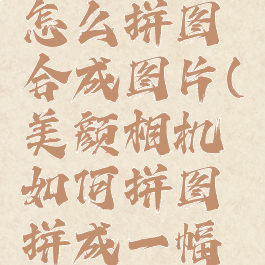 怎么拼图
合成图片(
美颜相机
如何拼图
拼成一幅